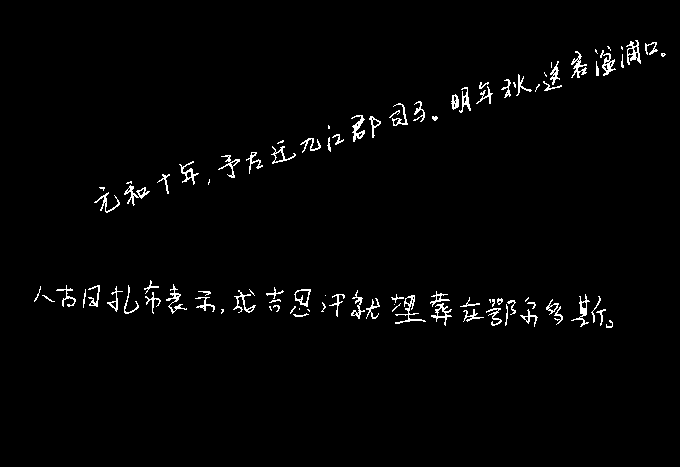 元和十年,予左迁九江郡司马。明年秋,送客湓浦口。
八古月扎布表示,成吉思汗就埋葬在鄂尔多斯。